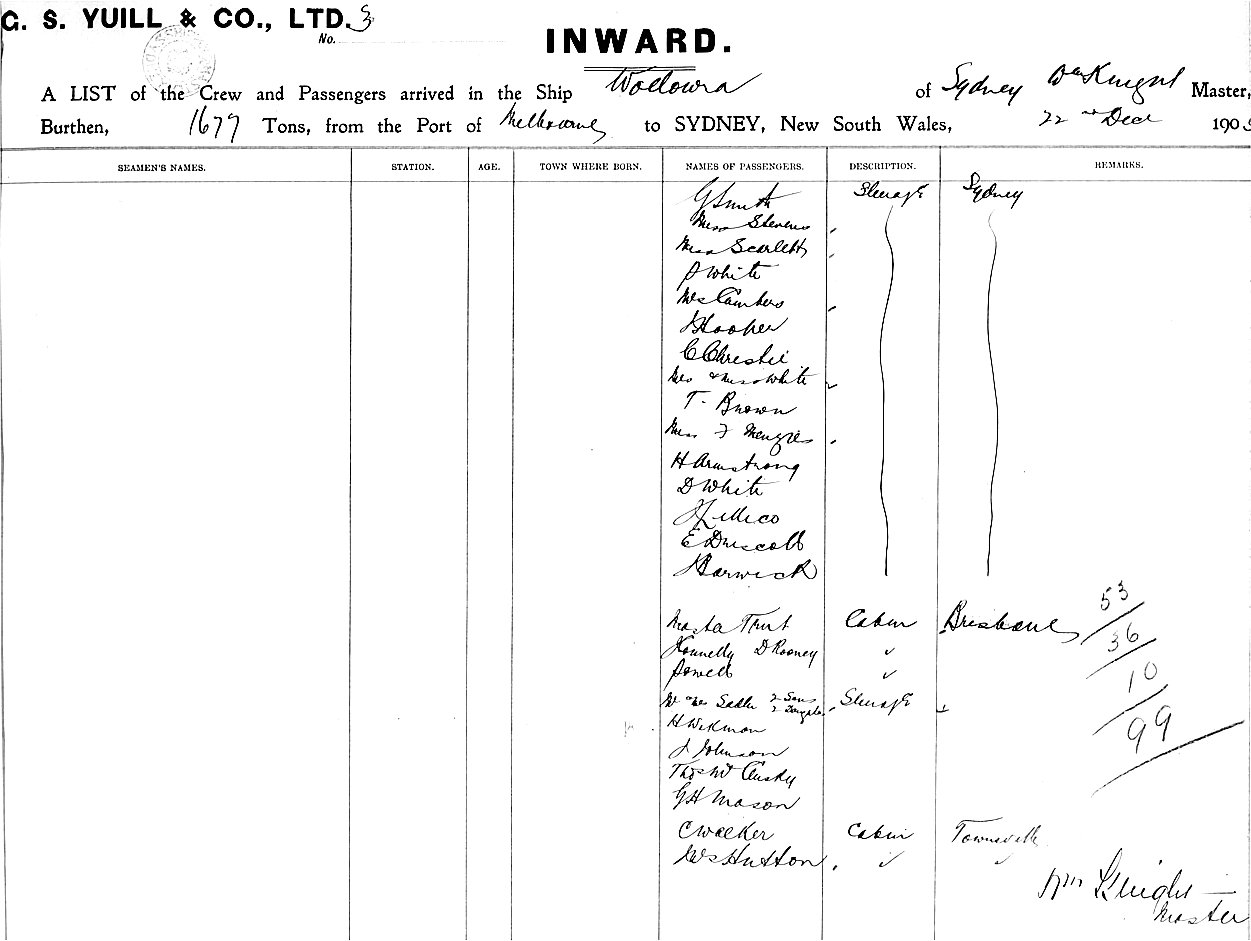 G. S. YUILL & CO., LTD. 3
No.
INWARD.
A LIST of the Crew and Passengers arrived in the Ship Wollowra of Sydney Wm Knight Master,
Burthen, 1677 Tons, from the Port of Melbourne to SYDNEY, New South Wales, 22nd Decr 190
SEAMEN'S NAMES. STATION. AGE. TOWN WHERE BORN. NAMES OF PASSENGERS. DESCRIPTION. REMARKS.
G Smith Steerage Sydney
Miss Stevens
Miss Scarlett
White
Mrs
J Hooper
C Christie
Mrs & Miss White
T. Brown
Miss F Menzies
H Armstrong
D White
E Driscoll
J Barwick
Master Trut Cabin Brisbane
Konnelly D Rooney
Powell
Mr & Mrs Sadler 2 Sons
2 Daughts Steerage
H
J Johnson
Thos Mc
G H Mason
C Walker Cabin Townsville
Mrs Hutton
53
36
10
99
Wm Knight
Master